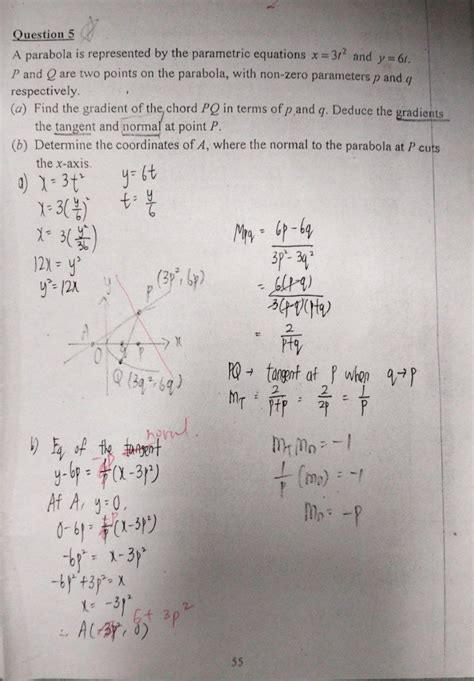 Question 5
A parabola is represented by the parametric equations x = 3t² and y = 6t.
P and Q are two points on the parabola, with non-zero parameters p and q
respectively.
(a) Find the gradient of the chord PQ in terms of p and q. Deduce the gradients
the tangent and normal at point P.
(b) Determine the coordinates of A, where the normal to the parabola at P cuts
the x-axis.
a) x = 3t² y = 6t
x = 3(y/6)² t = y/6
x = 3(y²/36)
12x = y²
y² = 12x
M_PQ = (6p - 6q)/(3p² - 3q²)
= 6(p-q)/3(p-q)(p+q)
= 2/(p+q)
y
P (3p², 6p)
A O q p x
Q (3q², 6q)
PQ → tangent at P when q → p
m_T = 2/(p+p) = 2/2p = 1/p
m_T m_n = -1
1/p (m_n) = -1
m_n = -p
b) Eq of the tangent normal
y - 6p = 1/p (x - 3p²) -p
At A, y = 0,
0 - 6p = 1/p (x - 3p²) -p
-6p² = x - 3p²
-6p² + 3p² = x
x = -3p²
∴ A(-3p², 0) 6 + 3p²
55